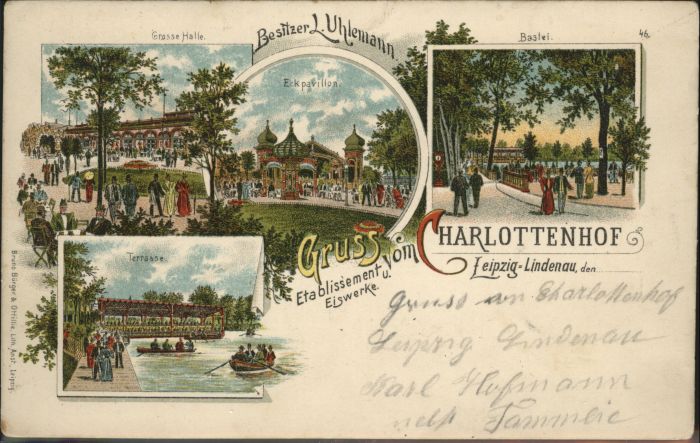 Grosse Halle.
Besitzer L. Uhlemann.
Bastei.
46.
Eckpavillon.
Gruss vom CHARLOTTENHOF
Etablissement u.
Eiswerke.
Leipzig-Lindenau, den
Terrasse.
Bruno Bürger & Ottillie, Lith. Anst. Leipzig.
Gruss von Charlottenhof
Leipzig Lindenau
Karl Hofmann
nebst Fammlie